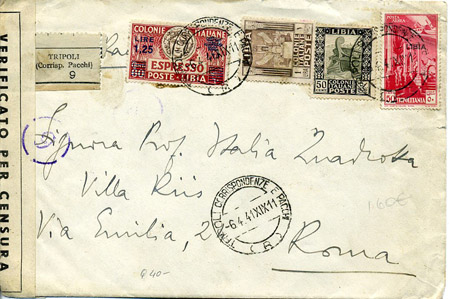 VERIFICATO PER CENSURA
TRIPOLI
(Corrisp. Pacchi)
9
COLONIE ITALIANE
LIRE
1.25
ESPRESSO
POSTE - LIBIA
LIBIA
50
COLONIE ITALIANE
POSTE
LIBIA
Signora Prof. Italia
Villa
Via Emilia, 2
Roma
TRIPOLI CORRISPONDENZE E PACCHI
-6.4.41XIX11
(B)
1.60€